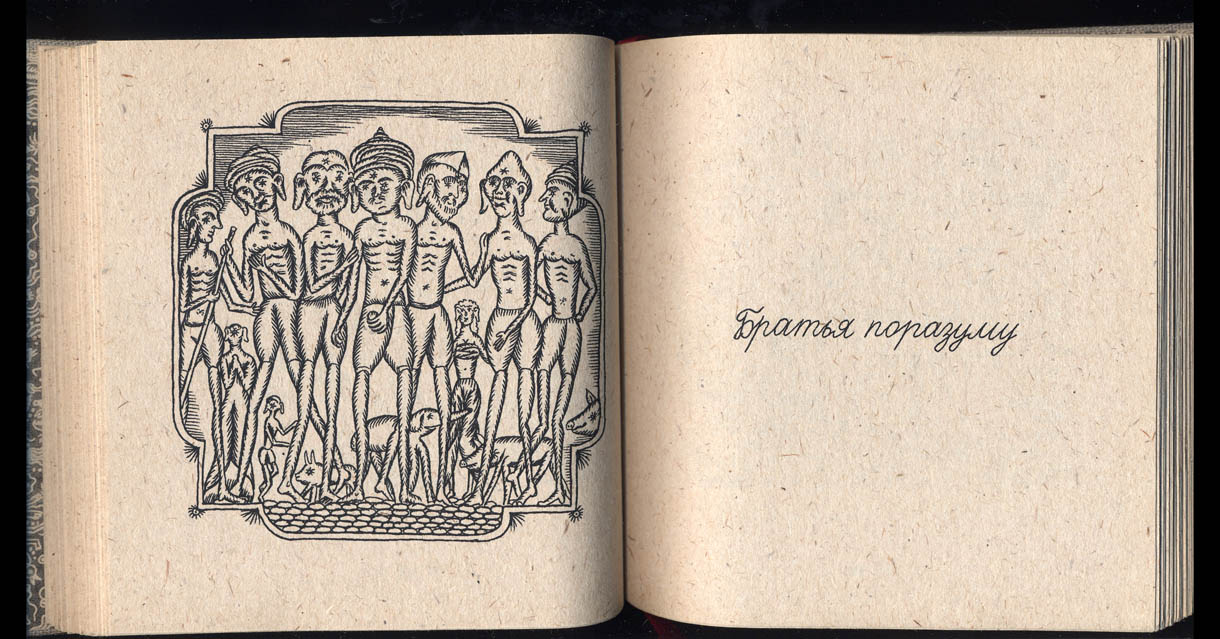 Братья поразуму